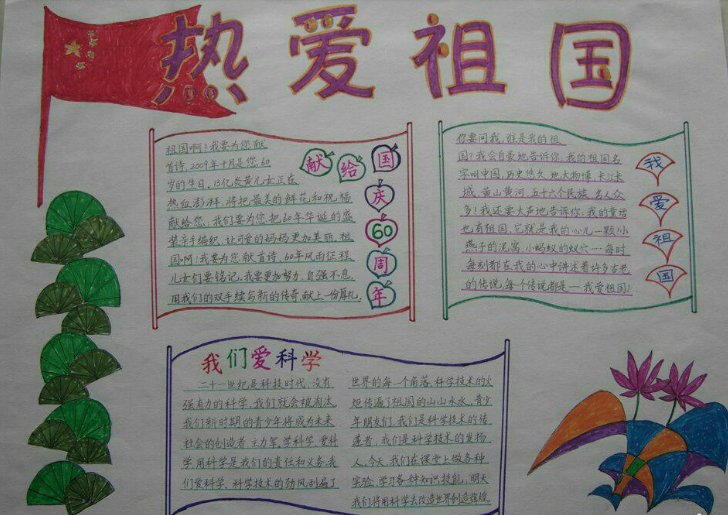 热爱祖国
献给国庆60周年
祖国啊!我要为您献
首诗,2009年十月是您60
岁的生日,13亿炎黄儿女正在
热血澎湃,将把最美的鲜花,和祝福
献给您,我们要为您把60年华诞的盛
装亲手编织,让可爱的妈妈更加美丽,祖
国啊!我要为您献首诗,60年风雨征程
儿女们要铭记,我要更加努力,自强不息
用我们的双手续写新的传奇,献上一份厚礼
我爱祖国
您要问我,谁是我的祖
国?我会自豪地告诉你,我的祖国名
字叫中国,历史悠久,地大物博,长江长
城,黄山黄河,五十六个民族,名人众
多!我还要大声地告诉你,我的爱培
也有祖国,它就是我的心儿一颗,小
燕子的泥窝,小蚂蚁的蚁穴…每时
每刻都在我的心中讲述着许多古老
的传说,每个传说都是一我爱祖国!
我们爱科学
二十一世纪是科技时代,没有
强有力的科学,我们就会被淘汰
我们新时期的青少年将成为未来
社会的创造者 主力军,学科学 爱科
学,用科学是我们的责任和义务,我
们爱科学,科学技术的劲风刮遍了
世界的每一个角落,科学技术的火
炬传遍了祖国的山山水水,青少
年朋友们,我们是科学技术的传
递者,我们是科学技术的发扬
人,今天,我们在课堂上做各种
实验,学习各种知识技能,明天
我们将用科学去改造世界创造辉煌